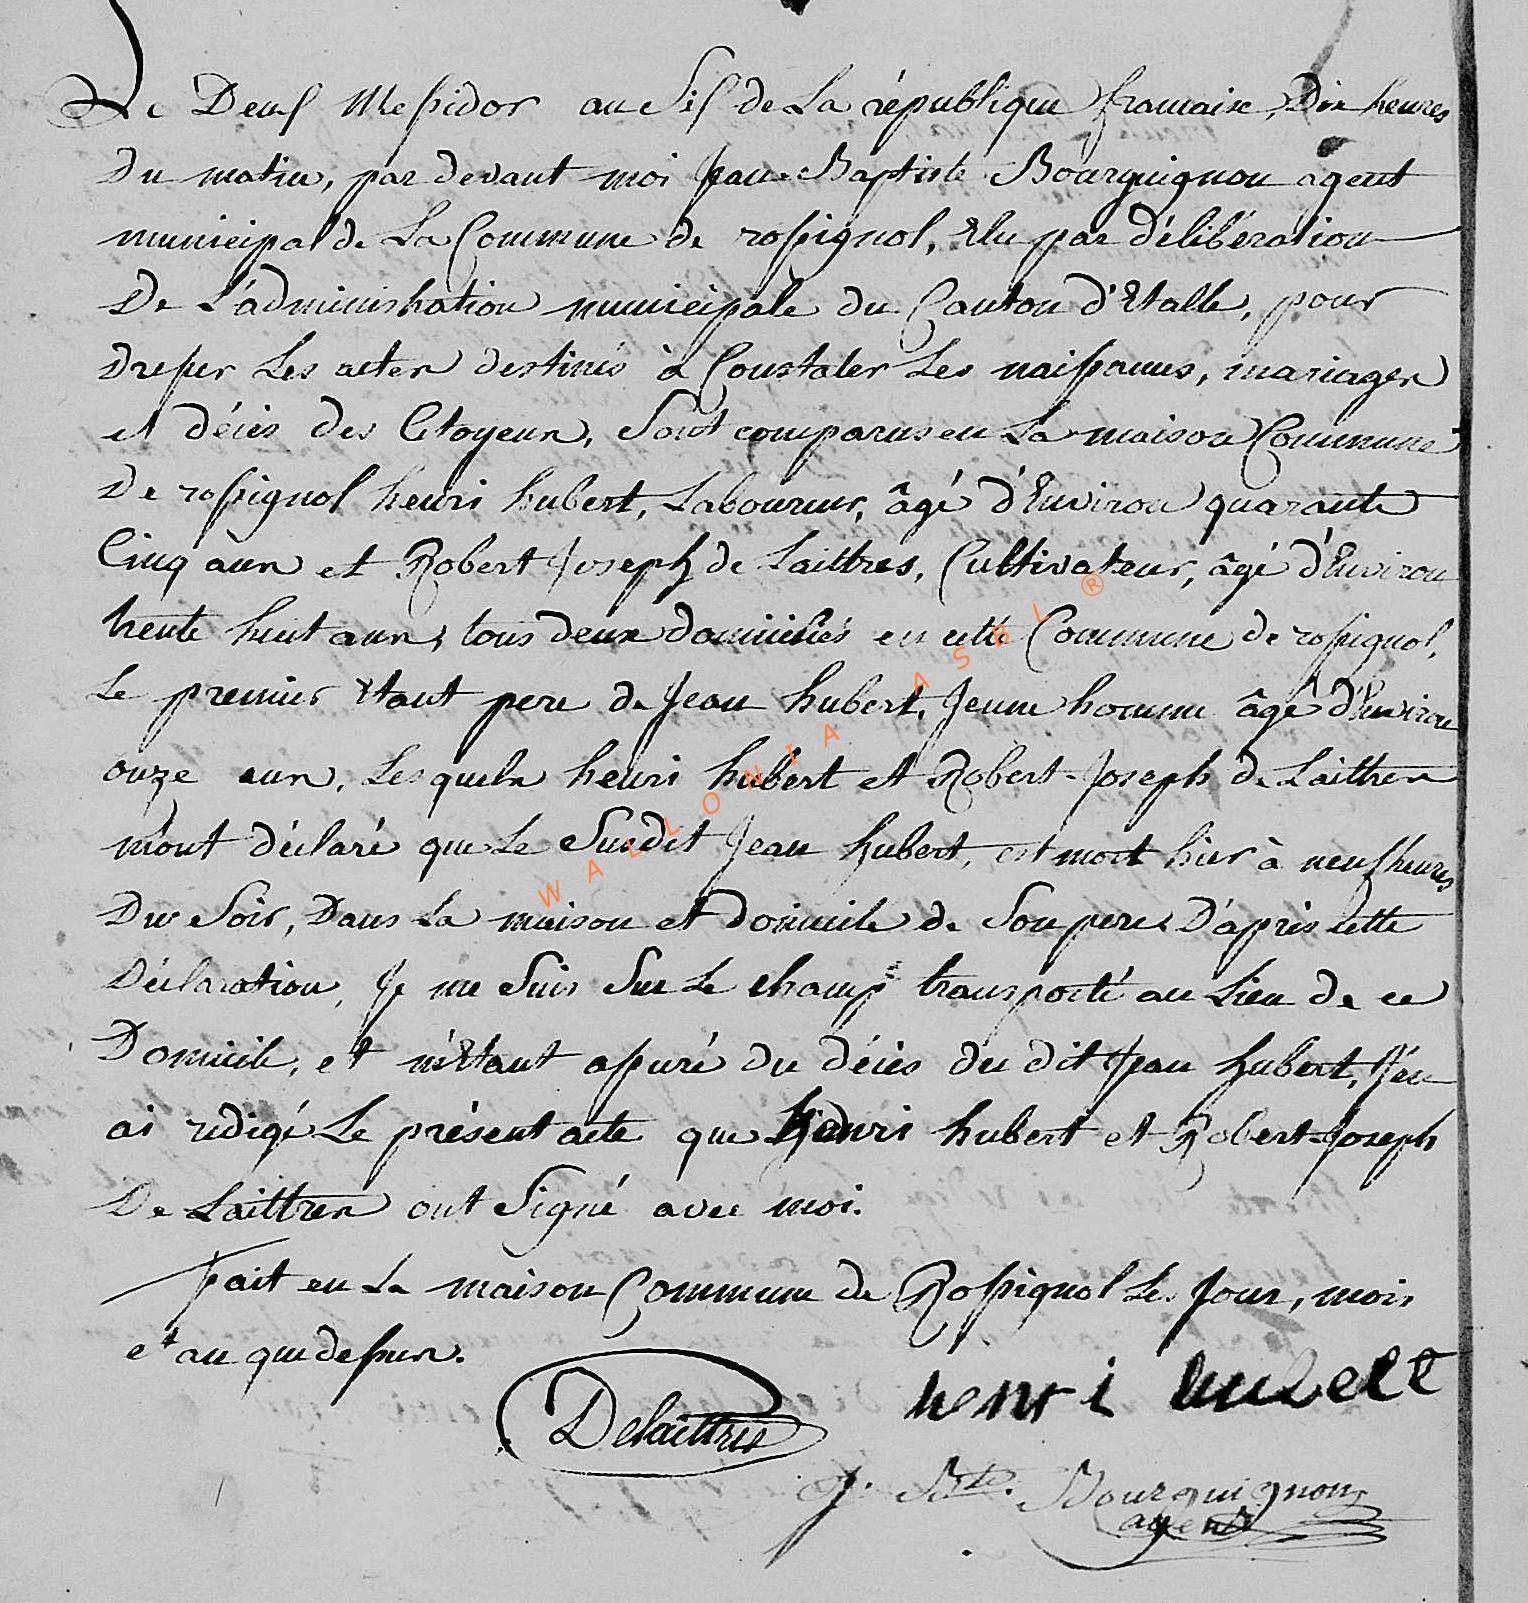 Le Deux Messidor an Six de La république francaise, Dix heures
Du matin, par devant moi Jean-Baptiste Bourguignon agent
municipal de La Commune de rossignol, Elu par délibération
De L'administration municipale du Canton d'Etalle, pour
dresser Les actes destinés à Constater Les naissances, mariages
et décès des Citoyens, Sont comparus en La maison Commune
De rossignol henri hubert, Laboureur, âgé d'Environ quarante
Cinq ans et Robert Joseph de Laittres, Cultivateur, âgé d'Environ
trente huit ans, tous deux domiciliés en cette Commune de rossignol,
Le premier Etant pere de Jean hubert, Jeune homme âgé d'Environ
onze ans, Lesquels henri hubert et Robert-Joseph de Laittres
m'ont déclaré que Le Susdit Jean hubert, est mort hier à neuf heures
Du Soir, Dans La maison et domicile de Son pere. D'après cette
Déclaration, Je me Suis Sur Le champ transporté au Lieu de ce
Domicile, et m'Etant assuré du décès du dit Jean hubert, J'en
ai rédigé Le présent acte que henri hubert et Robert-Joseph
De Laittres ont Signé avec moi.
fait en La maison Commune de Rossignol Les Jour, mois
et an que dessus.
Delaittres
henri hubert
J. Bte. Bourguignon
agent
WALLONIA ASBL ®